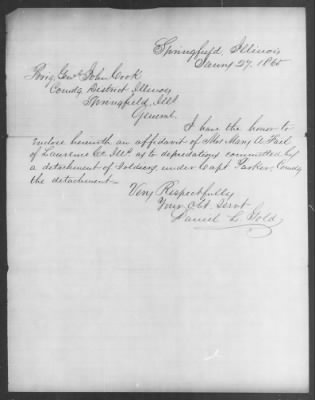 Springfield, Illinois
Jany 27. 1865
Brig. Genl. John Cook
Comdg District Illinois
Springfield, Ills
General.
I have the honor to
enclose herewith an affidavit of Mrs Mary A
of Lawrence Co. Ills as to depredations committed by
a detachment of Soldiers, under Capt Parker, Comdg
the detachment—
Very Respectfully
Your Obt Servt
Daniel L. Gold